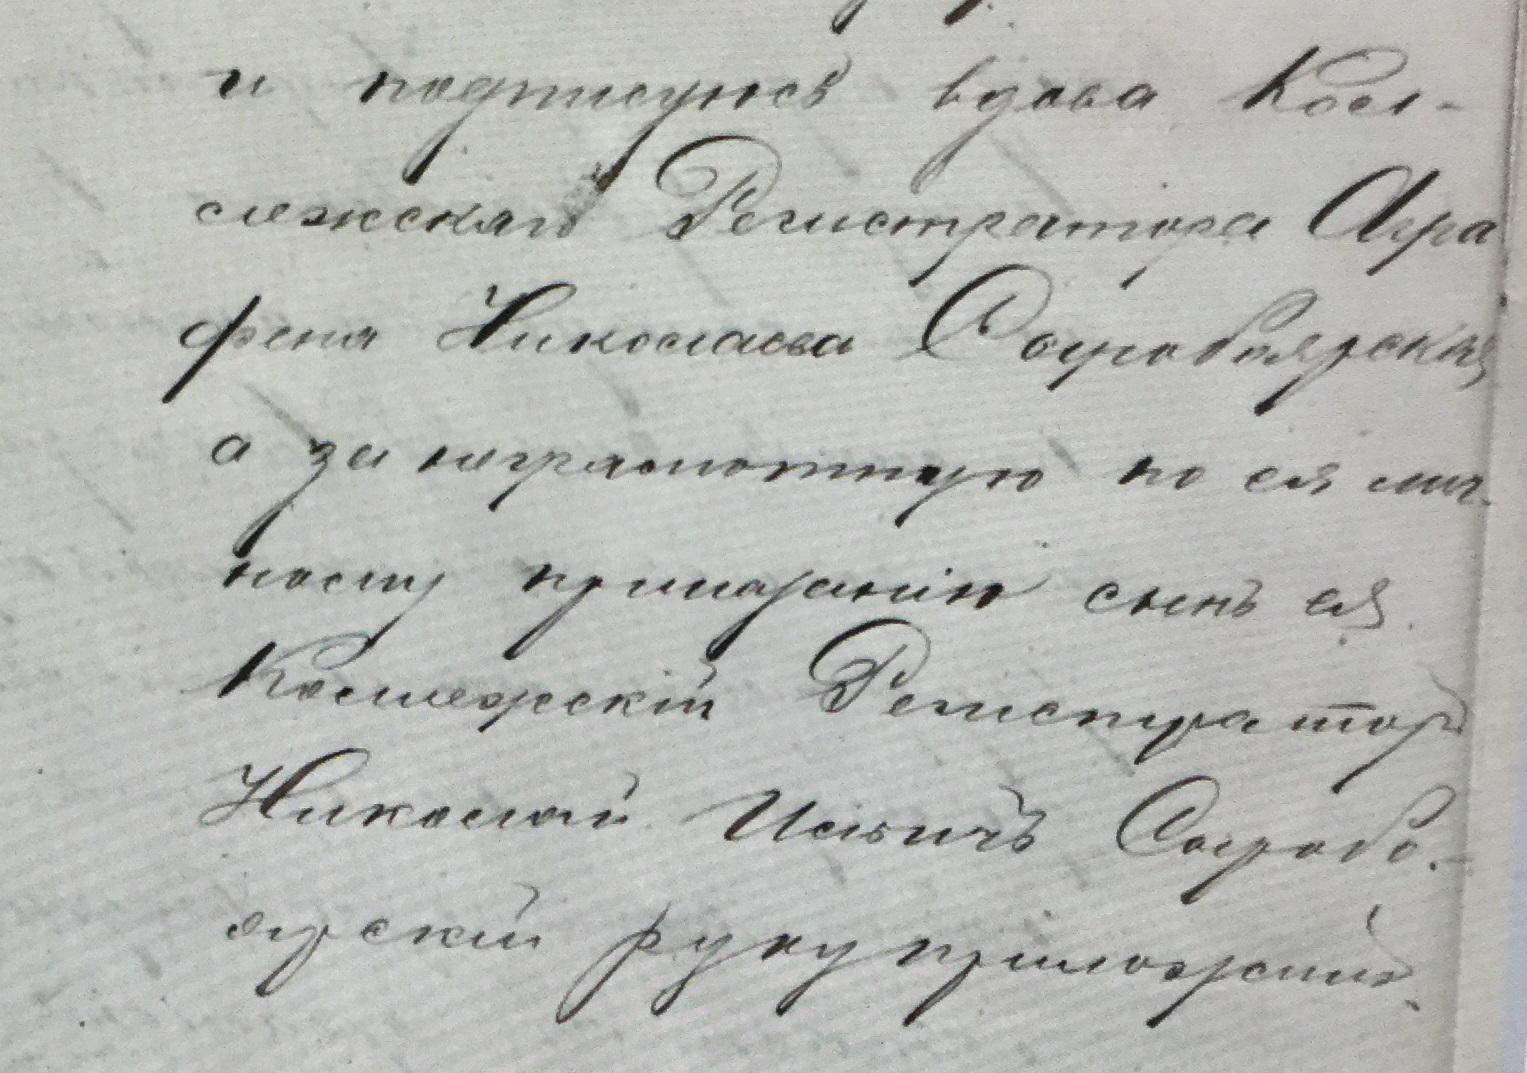 и подписуюсь вдова Кол-
лежскаго Регистратора Агра
фена Николаева Соробоярская
а за неграмотную по ея лич-
ному приказанію сынъ ея
Коллежскій Регистраторъ
Николай Ильичъ Соробо-
ярскій руку приложилъ.